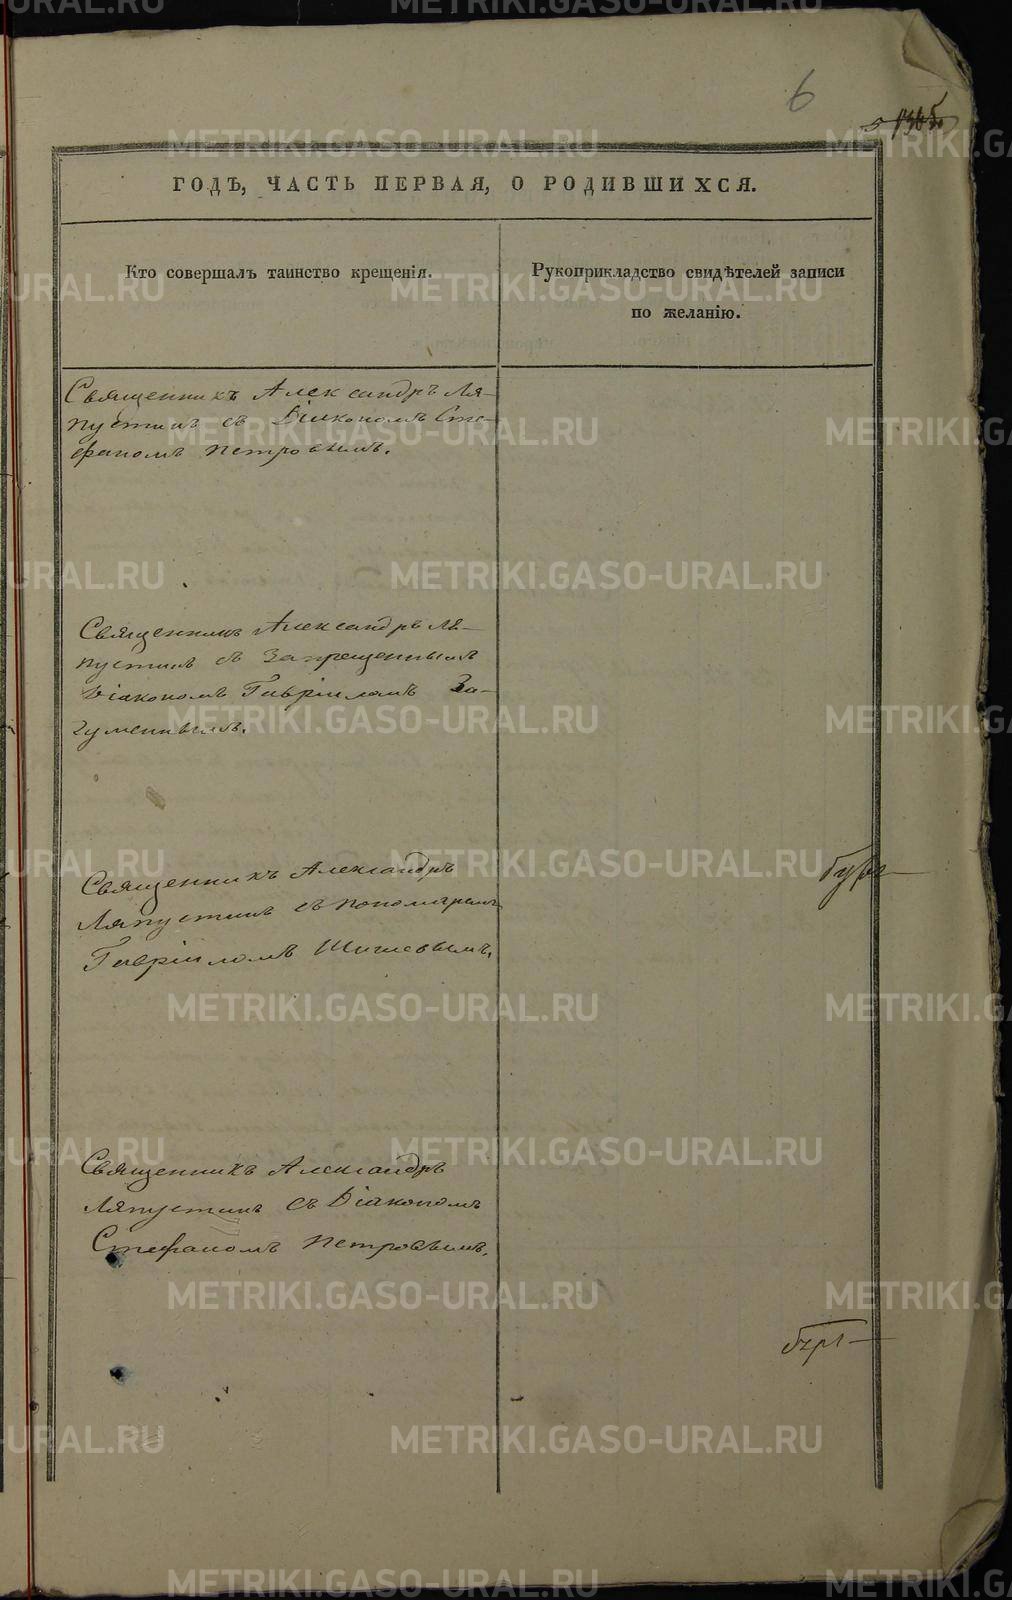 6
ГОДЪ, ЧАСТЬ ПЕРВАЯ, О РОДИВШИХСЯ.
Кто совершалъ таинство крещенія.
Рукоприкладство свидѣтелей записи
по желанію.
Священникъ Александръ Ля-
пустинъ съ Діакономъ Сте-
фаномъ Петровымъ.
Священникъ Александръ Ля-
пустинъ съ Запрещеннымъ
Діакономъ Гавріиломъ За-
гуменнымъ.
Священникъ Александръ
Ляпустинъ съ Пономаремъ
Гавріиломъ Шишевымъ.
Священникъ Александръ
Ляпустинъ съ Діакономъ
Стефаномъ Петровымъ.
METRIKI.GASO-URAL.RU